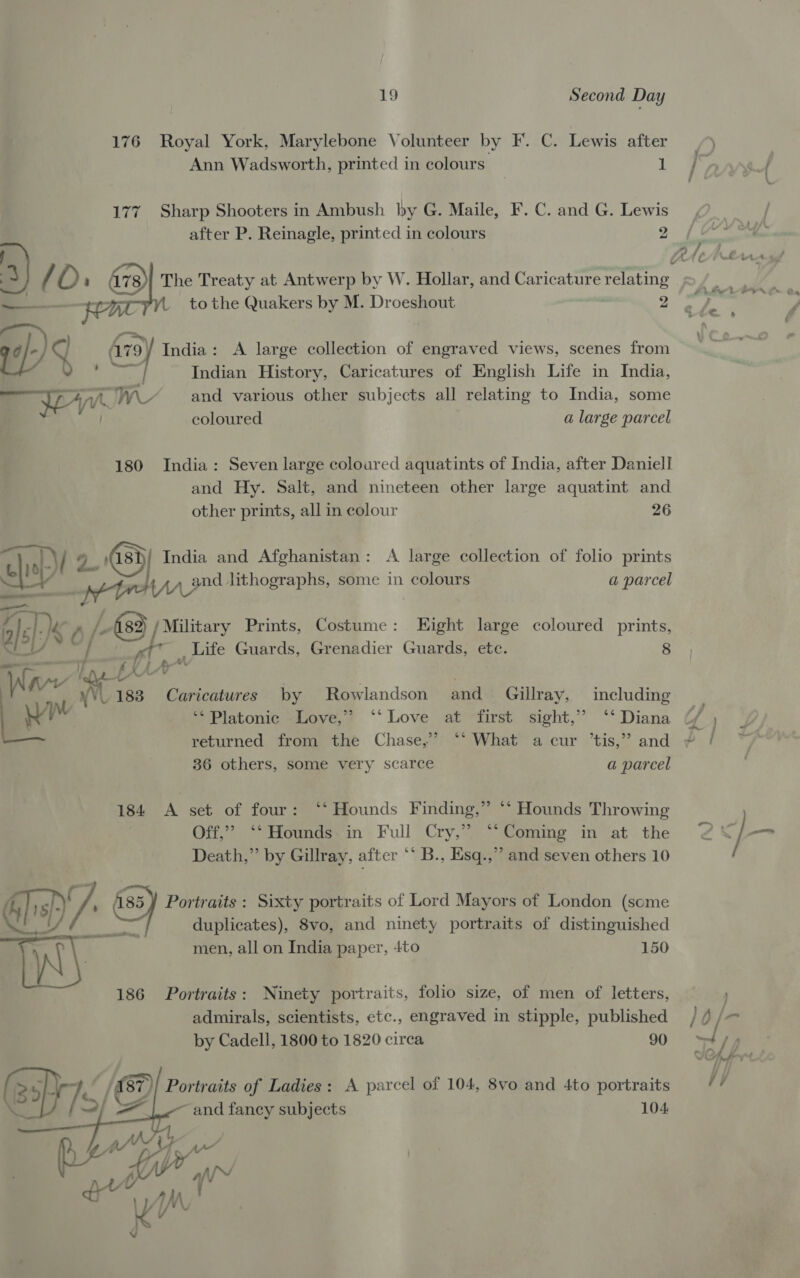 19 Second Day
176 Royal York, Marylebone Volunteer by F. C. Lewis after
Ann Wadsworth, printed in colours 1
177 Sharp Shooters in Ambush by G. Maile, F. C. and G. Lewis
after P. Reinagle, printed in colours 2
178 The Treaty at Antwerp by W. Hollar, and Caricature relating
to the Quakers by M. Droeshout 2
179 India : A large collection of engraved views, scenes from
Indian History, Caricatures of English Life in India,
and various other subjects all relating to India, some
coloured a large parcel
180 India : Seven large coloured aquatints of India, after Daniell
and Hy. Salt, and nineteen other large aquatint and
other prints, all in colour 26
181 India and Afghanistan : A large collection of folio prints
and lithographs, some in colours a parcel
182 Military Prints, Costume : Eight large coloured prints,
Life Guards, Grenadier Guards, etc. 8
183 Caricatures by Rowlandson and Gillray, including
“Platonic Love,” “Love at first sight,” “Diana
returned from the Chase,” “What a cur ’tis,” and
36 others, some very scarce a parcel
184 A set of four : “Hounds Finding,” “Hounds Throwing
Off,” “Hounds in Full Cry,” “Coming in at the
Death,” by Gillray, after “B., Esq.,” and seven others 10
185 Portraits : Sixty portraits of Lord Mayors of London (some
duplicates), 8vo, and ninety portraits of distinguished
men, all on India paper, 4to 150
186 Portraits : Ninety portraits, folio size, of men of letters,
admirals, scientists, etc., engraved in stipple, published
by Cadell, 1800 to 1820 circa 90
187 Portraits of Ladies : A parcel of 104, 8vo and 4to portraits
and fancy subjects 104